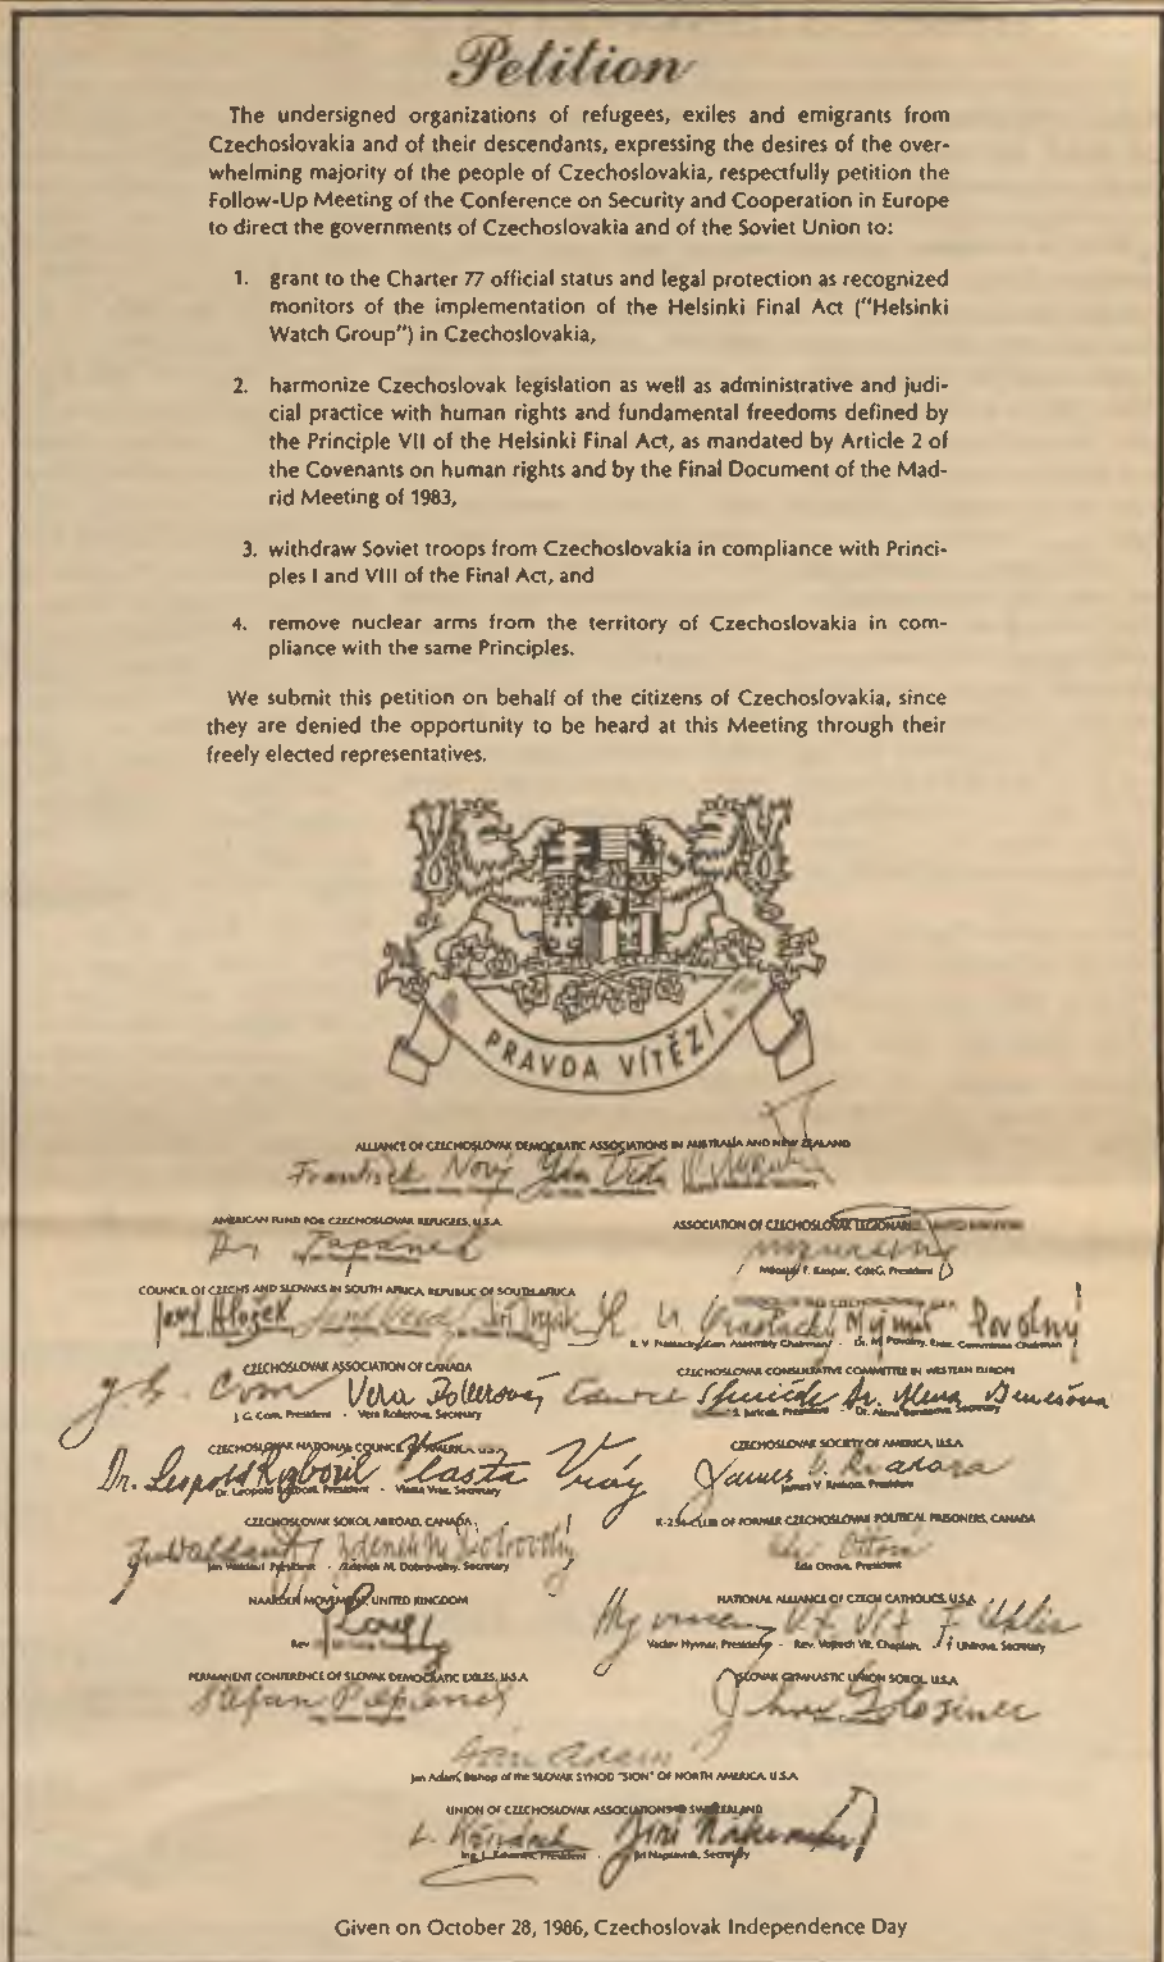 Petition
The undersigned organizations of refugees, exiles and emigrants from
Czechoslovakia and of their descendants, expressing the desires of the over-
whelming majority of the people of Czechoslovakia, respectfully petition the
Follow-Up Meeting of the Conference on Security and Cooperation in Europe
to direct the governments of Czechoslovakia and of the Soviet Union to:
1. grant to the Charter 77 official status and legal protection as recognized
monitors of the implementation of the Helsinki Final Act ("Helsinki
Watch Group") in Czechoslovakia,
2. harmonize Czechoslovak legislation as well as administrative and judi-
cial practice with human rights and fundamental freedoms defined by
the Principle VII of the Helsinki Final Act, as mandated by Article 2 of
the Covenants on human rights and by the Final Document of the Mad-
rid Meeting of 1983,
3. withdraw Soviet troops from Czechoslovakia in compliance with Princi-
ples I and VIII of the Final Act, and
4. remove nuclear arms from the territory of Czechoslovakia in com-
pliance with the same Principles.
We submit this petition on behalf of the citizens of Czechoslovakia, since
they are denied the opportunity to be heard at this Meeting through their
freely elected representatives.
PRAVDA VÍTĚZÍ
ALLIANCE OF CZECHOSLOVAK DEMOCRATIC ASSOCIATIONS IN AUSTRALIA AND NEW ZEALAND
František Nový
AMERICAN FUND FOR CZECHOSLOVAK REFUGEES, U.S.A.
ASSOCIATION OF CZECHOSLOVAK LEGIONARIES
Dr Papánek
F. Kaspar, CdeG, President
COUNCIL OF CZECHS AND SLOVAKS IN SOUTH AFRICA, REPUBLIC OF SOUTH AFRICA
Hložek Jiří
Mojmír Povolný
Assembly Chairman - Dr. M. Povolny, Exec. Committee Chairman
CZECHOSLOVAK ASSOCIATION OF CANADA
CZECHOSLOVAK CONSULTATIVE COMMITTEE IN WESTERN EUROPE
Vera Rollerová
Dr. Alena Benešová
J. G. Corn, President - Vera Rollerova, Secretary
President - Dr. Alena Benesova, Secretary
CZECHOSLOVAK NATIONAL COUNCIL OF AMERICA, U.S.A.
CZECHOSLOVAK SOCIETY OF AMERICA, U.S.A.
Dr. Leopold Rozbořil Vlasta Vráz
James V. Krakora
Dr. Leopold Rozboril, President - Vlasta Vraz, Secretary
James V. Krakora, President
CZECHOSLOVAK SOKOL ABROAD, CANADA
K-231-CLUB OF FORMER CZECHOSLOVAK POLITICAL PRISONERS, CANADA
J. Waldauf Zdenek M. Dobrovolný
Ottova
Jan Waldauf President - Zdenek M. Dobrovolny, Secretary
Eda Ottova, President
NAARDEN MOVEMENT, UNITED KINGDOM
NATIONAL ALLIANCE OF CZECH CATHOLICS, U.S.A.
Rev
Vaclav Hyvnar, President - Rev. Vojtech Vit, Chaplain, Secretary
PERMANENT CONFERENCE OF SLOVAK DEMOCRATIC EXILES, U.S.A.
SLOVAK GYMNASTIC UNION SOKOL, U.S.A.
Jan Adam, Bishop of the SLOVAK SYNOD "SION" OF NORTH AMERICA, U.S.A.
UNION OF CZECHOSLOVAK ASSOCIATIONS SWITZERLAND
Jiří
President - Jiri Napravnik, Secretary
Given on October 28, 1986, Czechoslovak Independence Day